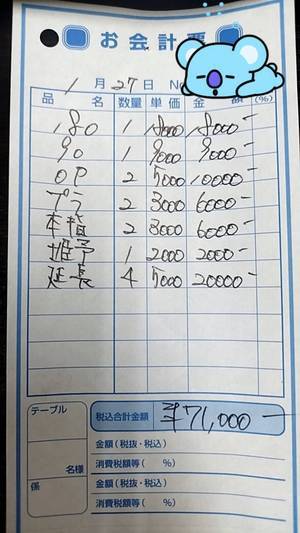 お会計票
1月27日 No
品名 数量 単価 金額 (%)
180 1 18000 18000-
90 1 9000 9000-
OP 2 5000 10000-
プラ 2 3000 6000-
本指 2 3000 6000-
姫予 1 2000 2000-
延長 4 5000 20000-
テーブル
税込合計金額 ¥71,000-
金額(税抜・税込)
名様 消費税額等( %)
係 金額(税抜・税込)
消費税額等( %)